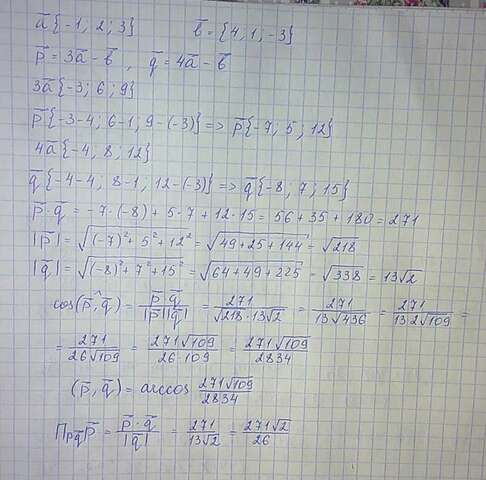 a̅{-1, 2; 3} b̅ = {4; 1; -3}
p̅ = 3a̅ - b̅ , q̅ = 4a̅ - b̅
3a̅{-3; 6; 9}
p̅{-3-4; 6-1; 9-(-3)} => p̅{-7; 5; 12}
4a̅{-4, 8; 12}
q̅{-4-4; 8-1, 12-(-3)} => q̅{-8; 7; 15}
p̅·q̅ = -7·(-8) + 5·7 + 12·15 = 56 + 35 + 180 = 271
|p̅| = √((-7)² + 5² + 12²) = √(49+25+144) = √218
|q̅| = √((-8)² + 7² + 15²) = √(64+49+225) = √338 = 13√2
cos(p̅,^q̅) = p̅·q̅/|p̅||q̅| = 271/√218·13√2 = 271/13√436 = 271/13·2√109 =
= 271/26√109 = 271√109/26·109 = 271√109/2834
(p̅, q̅) = arccos 271√109/2834
Пр_q̅ p̅ = p̅·q̅/|q̅| = 271/13√2 = 271√2/26